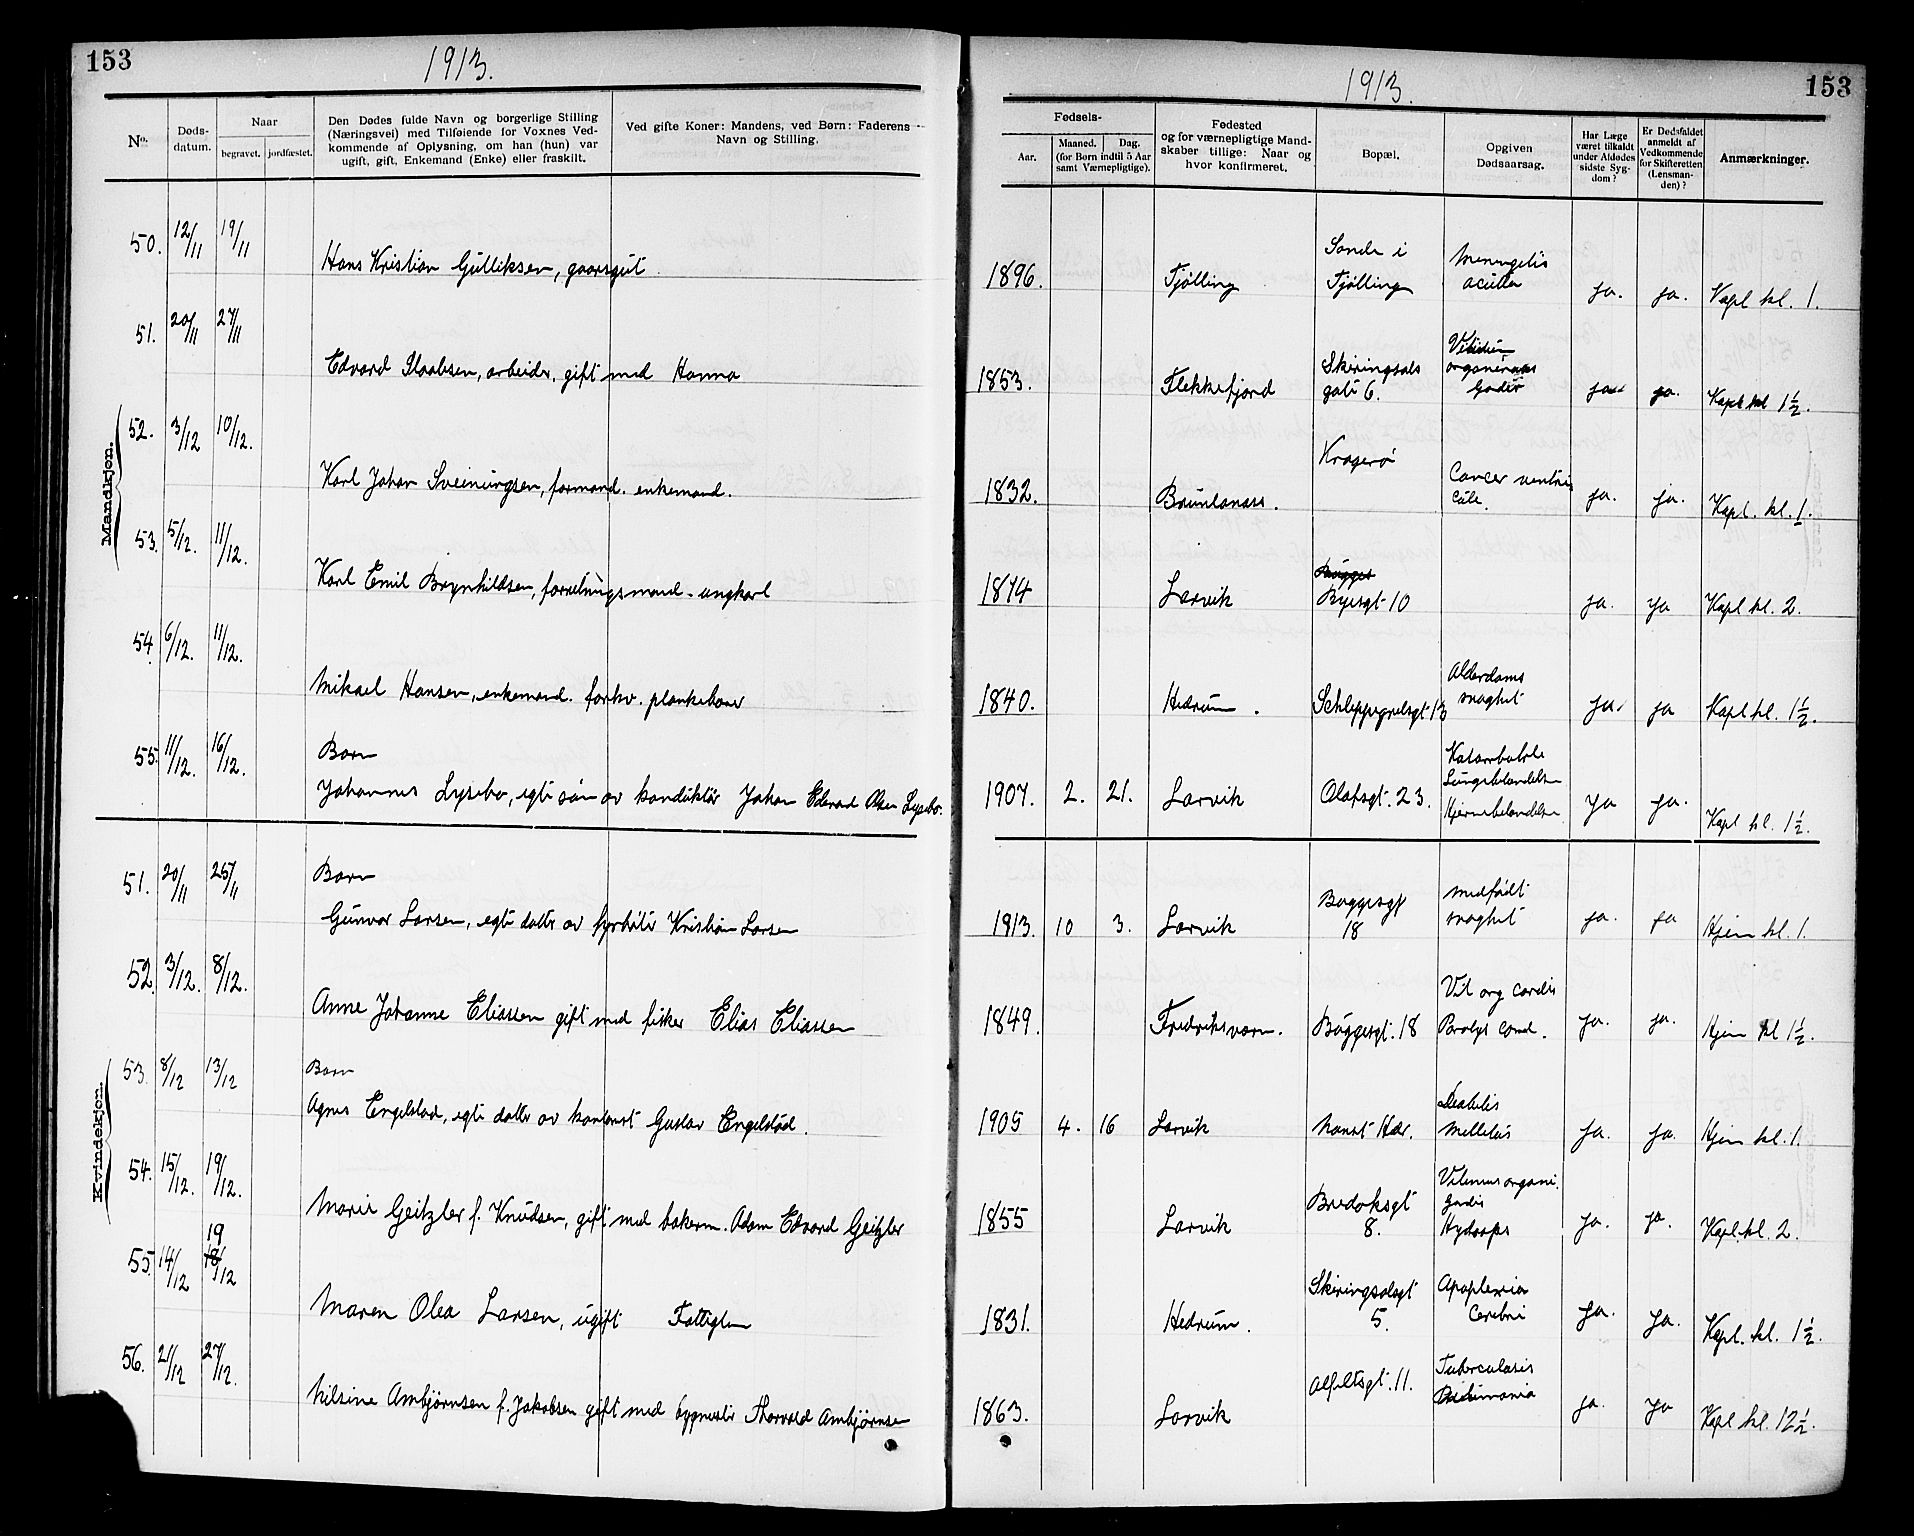 153
1913.
1913.
153
No.
Døds-
datum.
Naar
begravet. jordfæstet.
Den Dødes fulde Navn og borgerlige Stilling
(Næringsvei) med Tilføiende for Voxnes Ved-
kommende af Oplysning, om han (hun) var
ugift, gift, Enkemand (Enke) eller fraskilt.
Ved gifte Koner: Mandens, ved Børn: Faderens
Navn og Stilling.
Fødsels-
Aar.
Maaned. Dag.
(for Børn indtil 5 Aar
samt Værnepligtige).
Fødested
og for værnepligtige Mand-
skaber tillige: Naar og
hvor konfirmeret.
Bopæl.
Opgiven
Dødsaarsag.
Har Læge
været tilkaldt
under Afdødes
sidste Syg-
dom?
Er Dødsfaldet
anmeldt af
Vedkommende
for Skifteretten
(Lensman-
den)?
Anmærkninger.
Mandkjøn.
50. 12/11 19/11 Hans Kristian Gulliksen, gaarsgut 1896. Tjølling Sonde i Tjølling Meningitis acuta ja. ja. Kapl kl. 1.
51. 20/11 27/11 Edvard Jacobsen, arbeider, gift med Hanna 1853. Flekkefjord Skiringsals gate 6. Vitium ja ja. Kapl kl 1½.
52. 3/12 10/12. Karl Johan Sveinungsen, formand. enkemand. 1832. Brunlanæs. Kragerø Cancer ventri cule. ja. ja. Kapl. kl. 1.
53. 5/12. 11/12. Karl Emil Brynhildsen, forretningsmand. ungkarl 1874 Larvik Byesgt 10 ja. ja Kapl kl. 2.
54. 6/12. 11/12. Mikael Hansen, enkemand. forhv. plankebærer 1840. Hedrum. Schleppegrelsgt 13 Alderdoms svaghet ja. ja Kapl kl. 1½.
55. 11/12. 16/12. Barn
Johannes Lysebo, egte søn av konduktør Johan Edvard Olsen Lysebo. 1907. 2. 21. Larvik Olafsgt. 23. Katarrhalsk Lungebetændelse Hjernebetændelse ja ja. Kapl kl. 1½.
Kvindekjøn.
51. 20/11 25/11 Barn
Gunvor Larsen, egte datter av fyrbøter Kristian Larsen 1913. 10 3. Larvik Buggesgt 18 medfødt svaghet ja. ja Hjem kl. 1.
52. 3/12. 8/12. Anne Johanne Eliassen gift med fisker Elias Eliassen 1849. Fredriksværn. Buggesgt. 18 Vit org cordis Paralys cord. ja. ja. Hjem kl 1½.
53. 8/12 13/12 Barn
Agnes Engelstad, egte datter av kontorist Gustav Engelstad. 1905 4. 16 Larvik Nanset Hdr. Diabetis Mellitus ja. ja. Hjem kl. 1.
54. 15/12. 19/12. Marie Geitzler f. Knudsen, gift med bakerm. Adam Edvard Geitzler 1855 Larvik Bredoksgt 8. Vitium organi. Hydrops ja. ja. Kapl. kl. 2.
55. 14/12 18 19/12 Maren Olea Larsen, ugift Fattiglem 1831. Hedrum. Skiringsalsgt 5. Apoplexia Cerebri ja. ja. Kapl. kl. 1½.
56. 21/12 27/12. Nilsine Ambjørnsen f. Jakobsen gift med bygmester Thorvald Ambjørnsen 1863. Larvik Alfeltsgt. 11. Tuberculosis ja. ja Kapl kl. 12½.